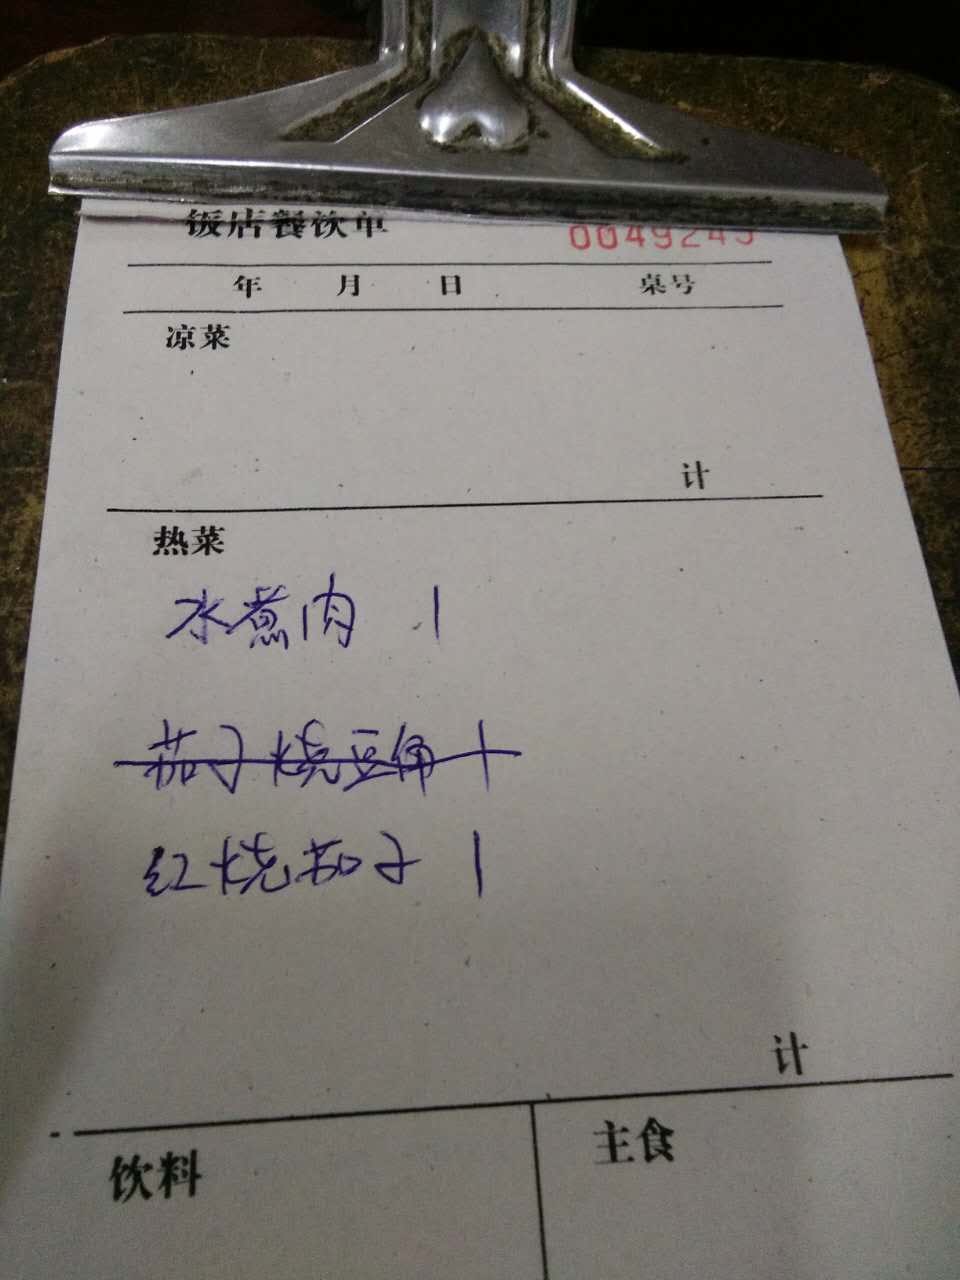 饭店餐饮单 0049245
年 月 日 桌号
凉菜
计
热菜
水煮肉 1
茄子烧豆角 1
红烧茄子 1
计
饮料 主食